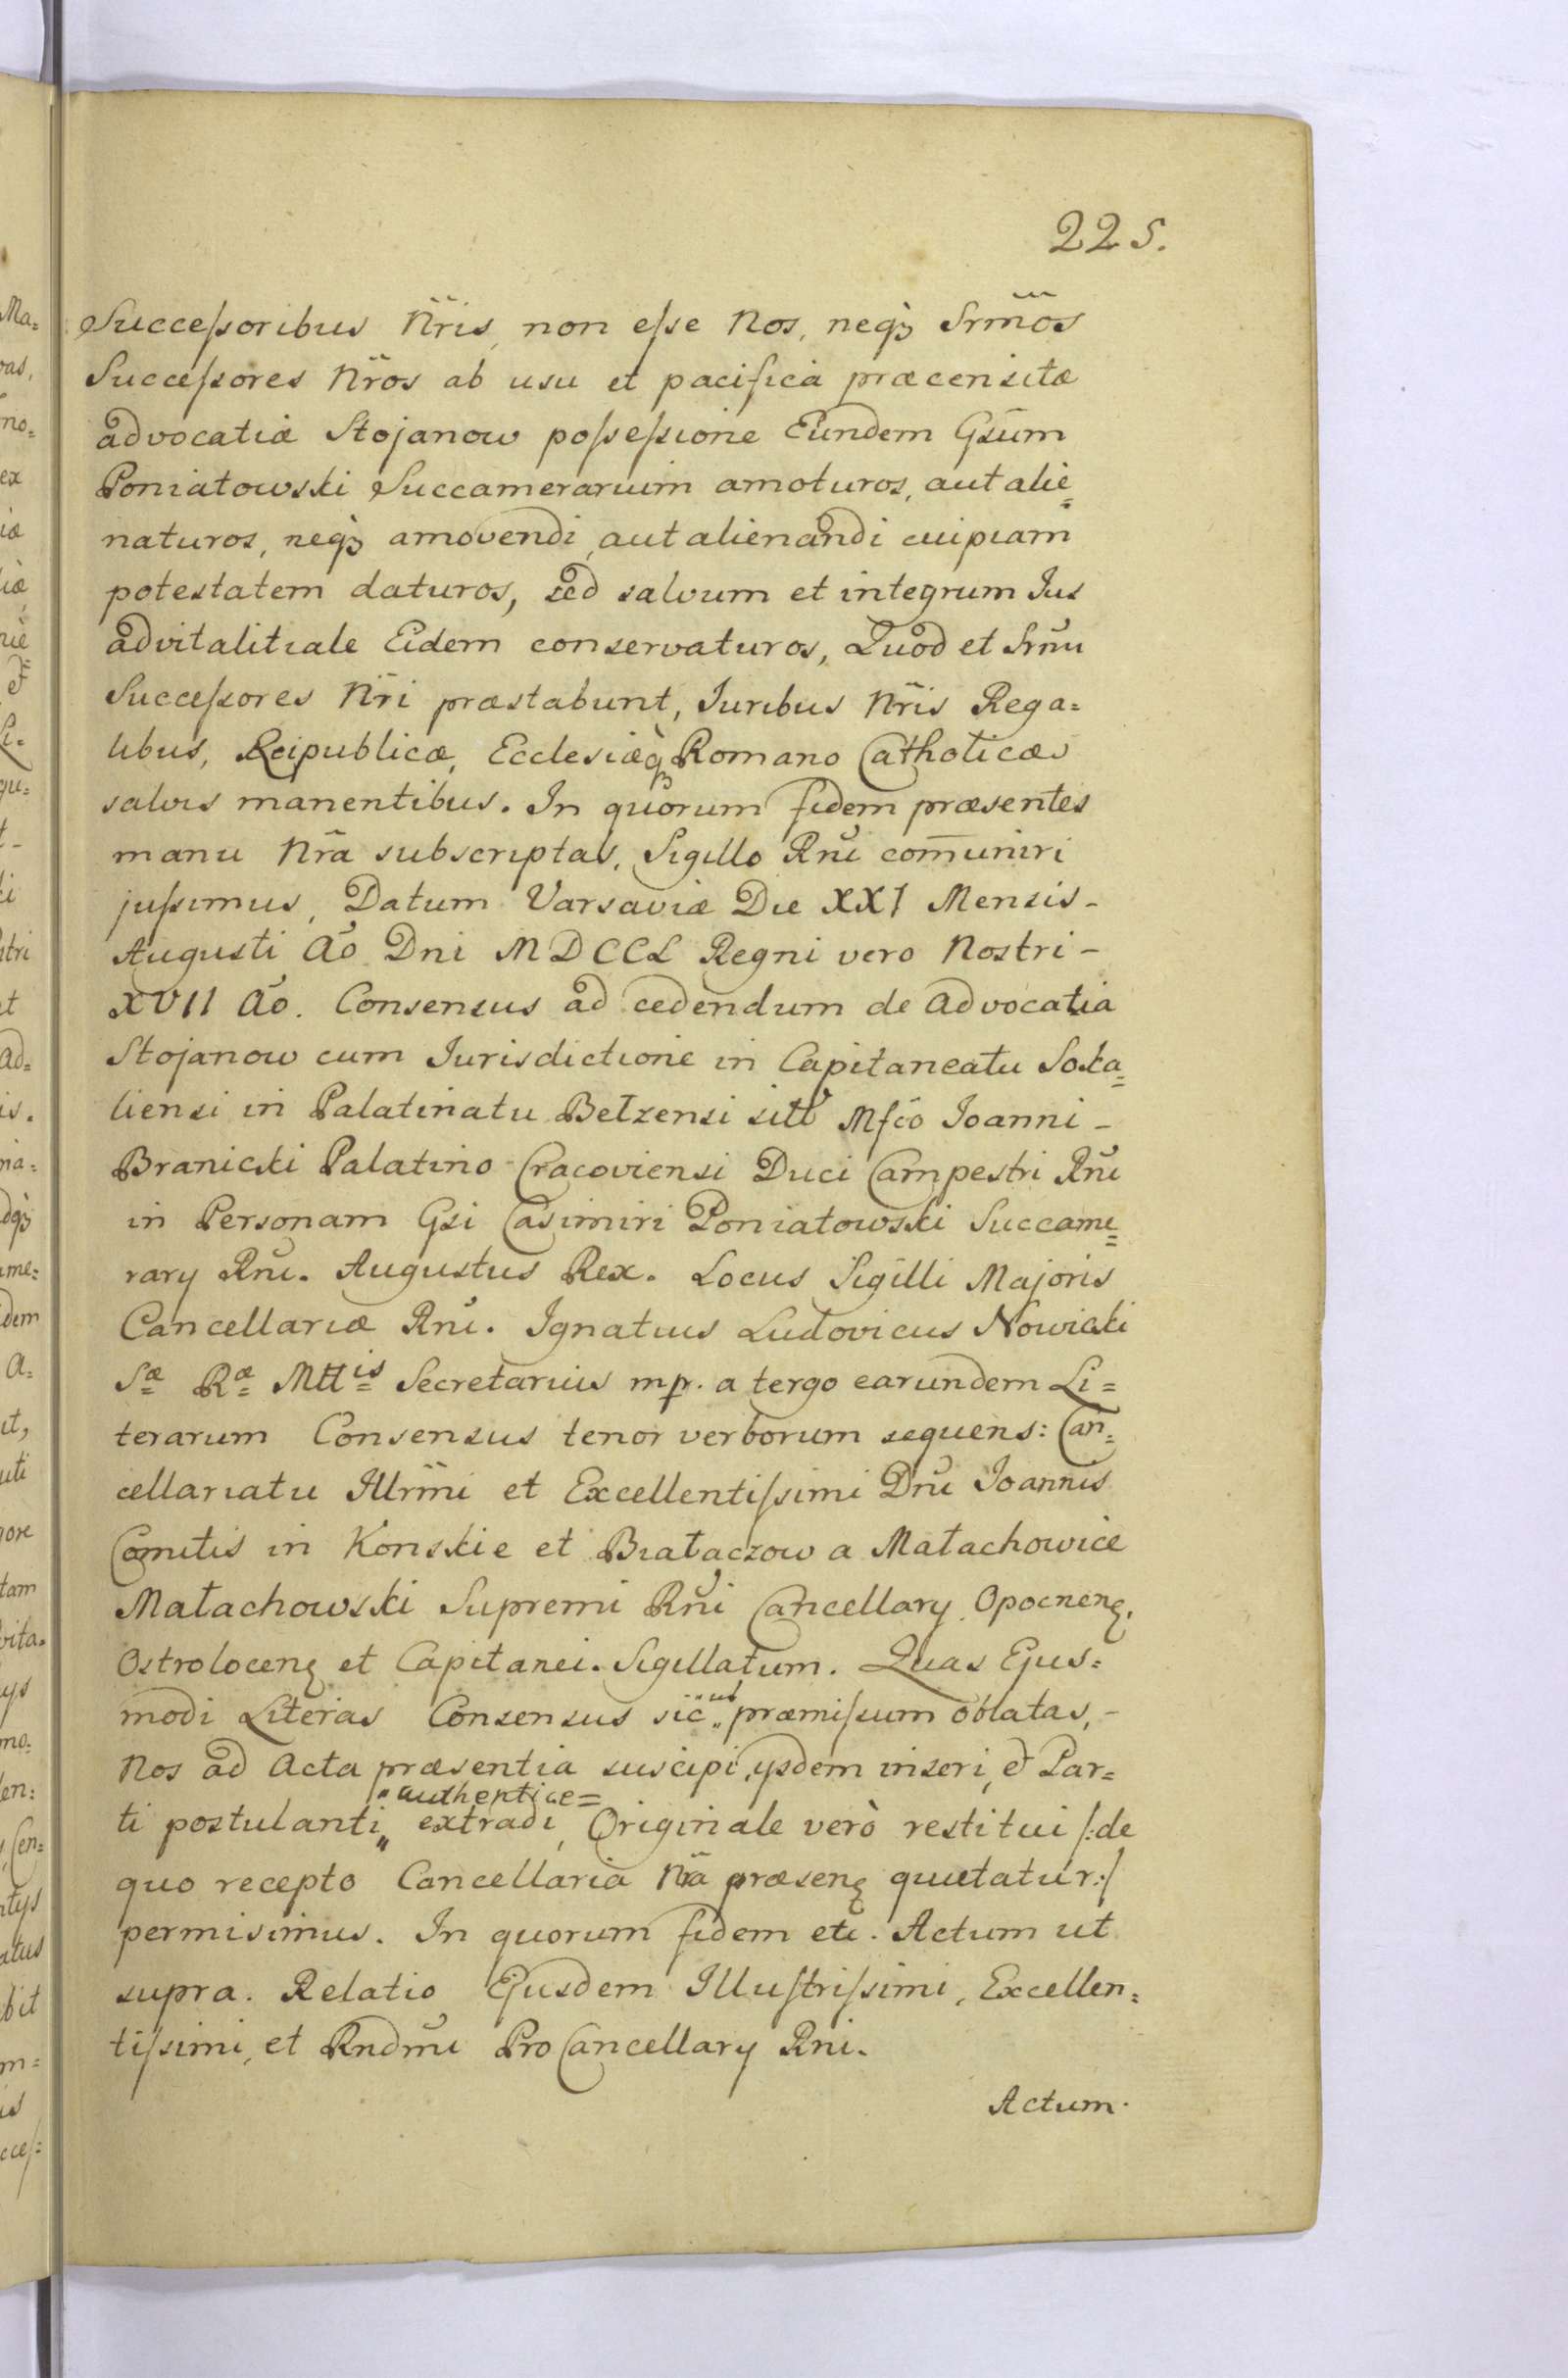 225.
Successoribus Nr̃is, non esse Nos, neqꝫ Srm̃os
Successores Nr̃os ab usu et pacifica præcensitæ
advocatiæ Stojanow possessione Eundem Gsũm
Poniatowski Succamerarium amoturos, aut alie=
naturos, neqꝫ amovendi, aut alienandi cuipiam
potestatem daturos, sed salvum et integrum Jus
advitalitiale Eidem conservaturos, Quod et Srm̃i
Successores Nr̃i præstabunt, Juribus Nr̃is Rega=
libus, Reipublicæ, Ecclesiæqꝫ Romano Catholicæ
salvis manentibus. In quorum fidem præsentes
manu Nr̃a subscriptas, Sigillo Rñi com̃uniri
jussimus, Datum Varsaviæ Die XXI Mensis -
Augusti Aõ Dni MDCCL Regni vero Nostri -
XVII Aõ. Consensus ad cedendum de Advocatia
Stojanow cum Jurisdictione in Capitaneatu Soka=
liensi in Palatinatu Bełzensi sitẽ Mfc̃o Joanni -
Branicki Palatino Cracoviensi Duci Campestri Rñi
in Personam Gsi Casimiri Poniatowski Succame=
rary Rñi. Augustus Rex. Locus Sigilli Majoris
Cancellariæ Rñi. Ignatius Ludovicus Nowicki
Sæ Ræ Mttis Secretarius mp. a tergo earundem Li=
terarum Consensus tenor verborum sequens: Can=
cellariatu Illrm̃i et Excellentissimi Dñi Joannis
Comitis in Konskie et Białaczow a Małachowice
Małachowski Supremi Rñi Cancellary Opocneñ,
Ostroloceñ et Capitanei. Sigillatum. Quas Ejus=
modi Literas Consensus sic „ut præmissum oblatas, -
Nos ad Acta præsentia suscipi, ysdem inseri, et Par=
„authentice=
ti postulanti„ extradi, Originale verò restitui /:de
quo recepto Cancellaria Nr̃a præseñ quietatur:/
permisimus. In quorum fidem etc. Actum ut
supra. Relatio Ejusdem Illustrissimi, Excellen=
tissimi, et Rndm̃i ProCancellary Rni.
Actum.